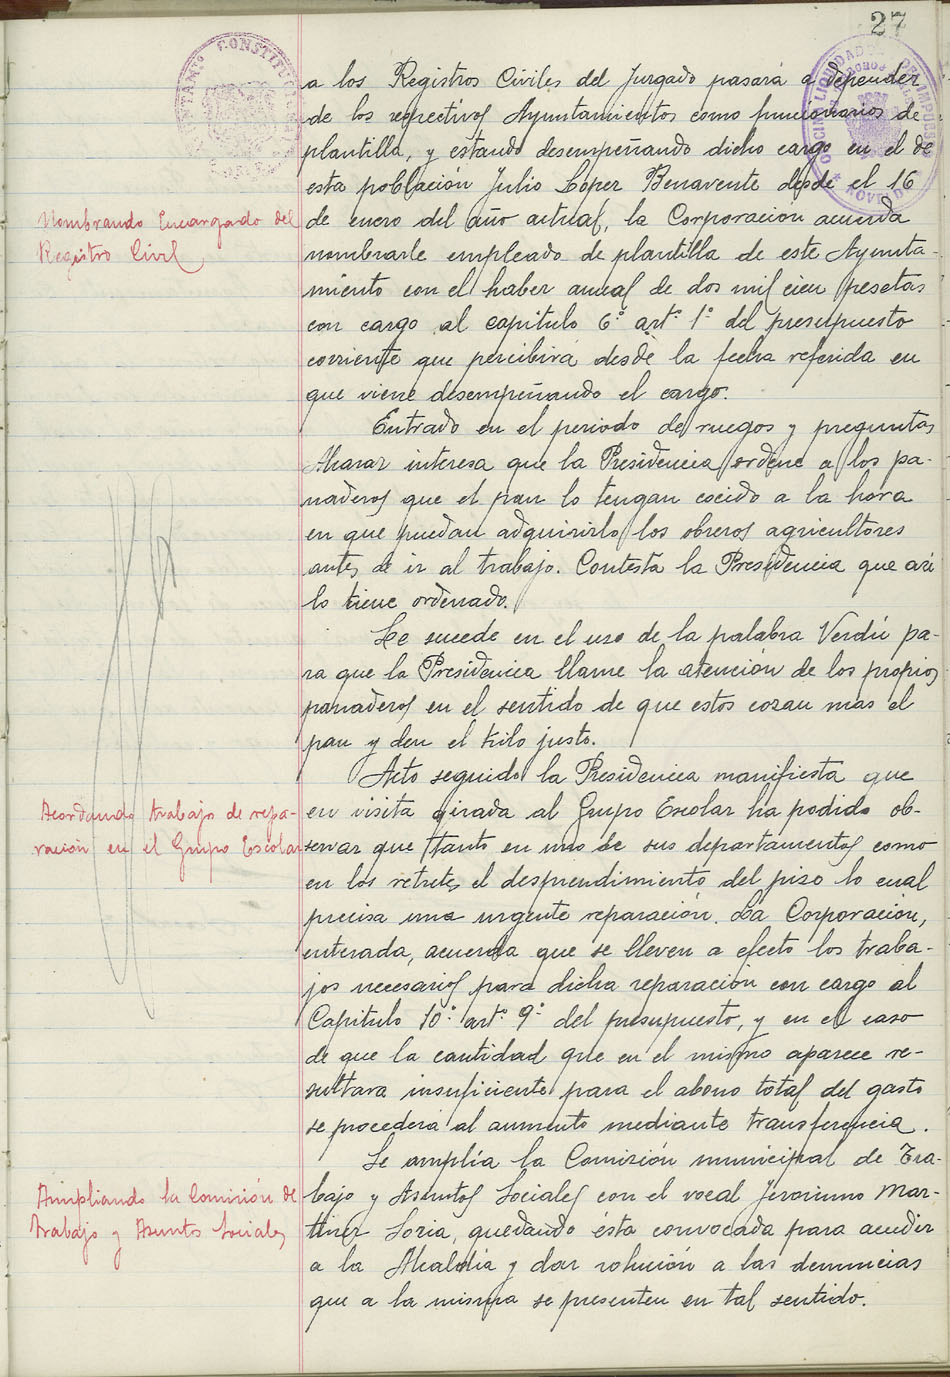 27
a los Registros Civiles del Juzgado pasará a depender
de los respectivos Ayuntamientos como funcionarios de
plantilla, y estando desempeñando dicho cargo en el de
esta población Julio López Benavente desde el 16
Nombrando Encargado del
Registro Civil
de enero del año actual, la Corporación acuerda
nombrarle empleado de plantilla de este Ayunta-
miento con el haber anual de dos mil cien pesetas
con cargo al capitulo 6º artº 1º del presupuesto
corriente que percibirá desde la fecha referida en
que viene desempeñando el cargo.
Entrado en el periodo de ruegos y preguntas
interesa que la Presidencia ordene a los pa-
naderos que el pan lo tengan cocido a la hora
en que puedan adquirirlo los obreros agricultores
antes de ir al trabajo. Contesta la Presidencia que así
lo tiene ordenado.
Le sucede en el uso de la palabra Verdú pa-
ra que la Presidencia llame la atención de los propios
panaderos en el sentido de que estos cozan mas el
pan y den el kilo justo.
Acto seguido la Presidencia manifiesta que
Acordando trabajo de repa-
ración en el Grupo Escolar
en visita girada al Grupo Escolar ha podido ob-
servar que tanto en uno de sus departamentos como
en los retretes el desprendimiento del piso lo cual
precisa una urgente reparación. La Corporación,
enterada, acuerda que se lleven a efecto los traba-
jos necesarios para dicha reparación con cargo al
Capitulo 10º artº 9º del presupuesto, y en el caso
de que la cantidad que en el mismo aparece re-
sultara insuficiente para el abono total del gasto
se procederá al aumento mediante transferencia.
Se amplía la Comisión municipal de Tra-
Ampliando la Comisión de
Trabajo y Asuntos Sociales
bajo y Asuntos Sociales con el vocal Jeronimo Mar-
tinez Soria, quedando ésta convocada para acudir
a la Alcaldía y dar solución a las denuncias
que a la misma se presenten en tal sentido.